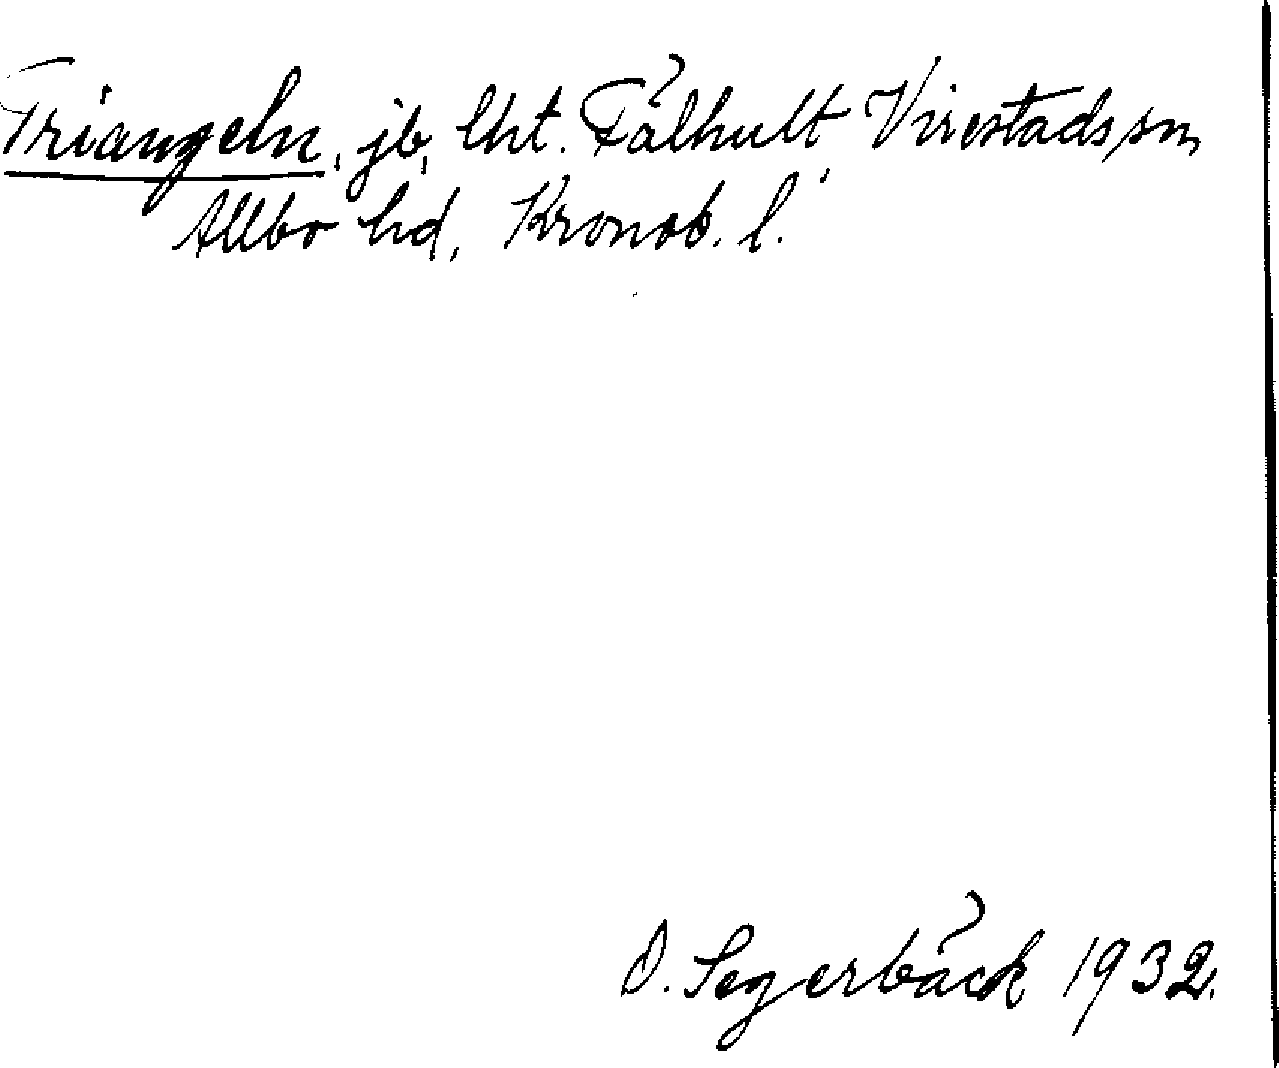 Triangeln, jb, lht. Fälhult Virestads sn,
Allbo hd, Kronob. l.
O. Segerbäck 1932.